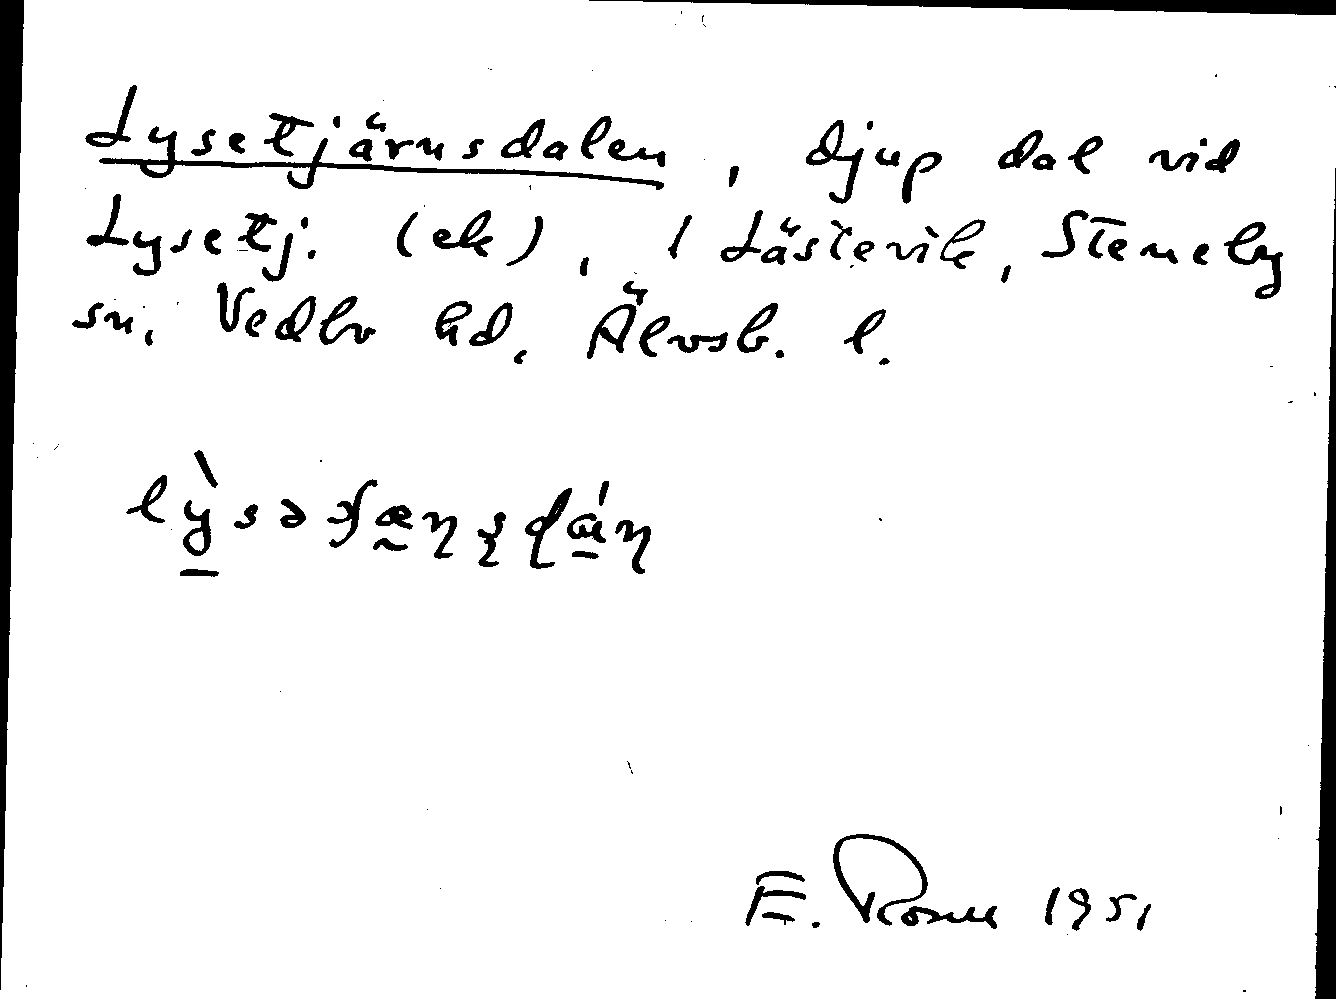 Lysetjärnsdalen, djup dal vid
Lysetj. (ek), i Låstevik, Steneby
sn, Vedbo hd, Älvsb. l.
E. Rosell 1951